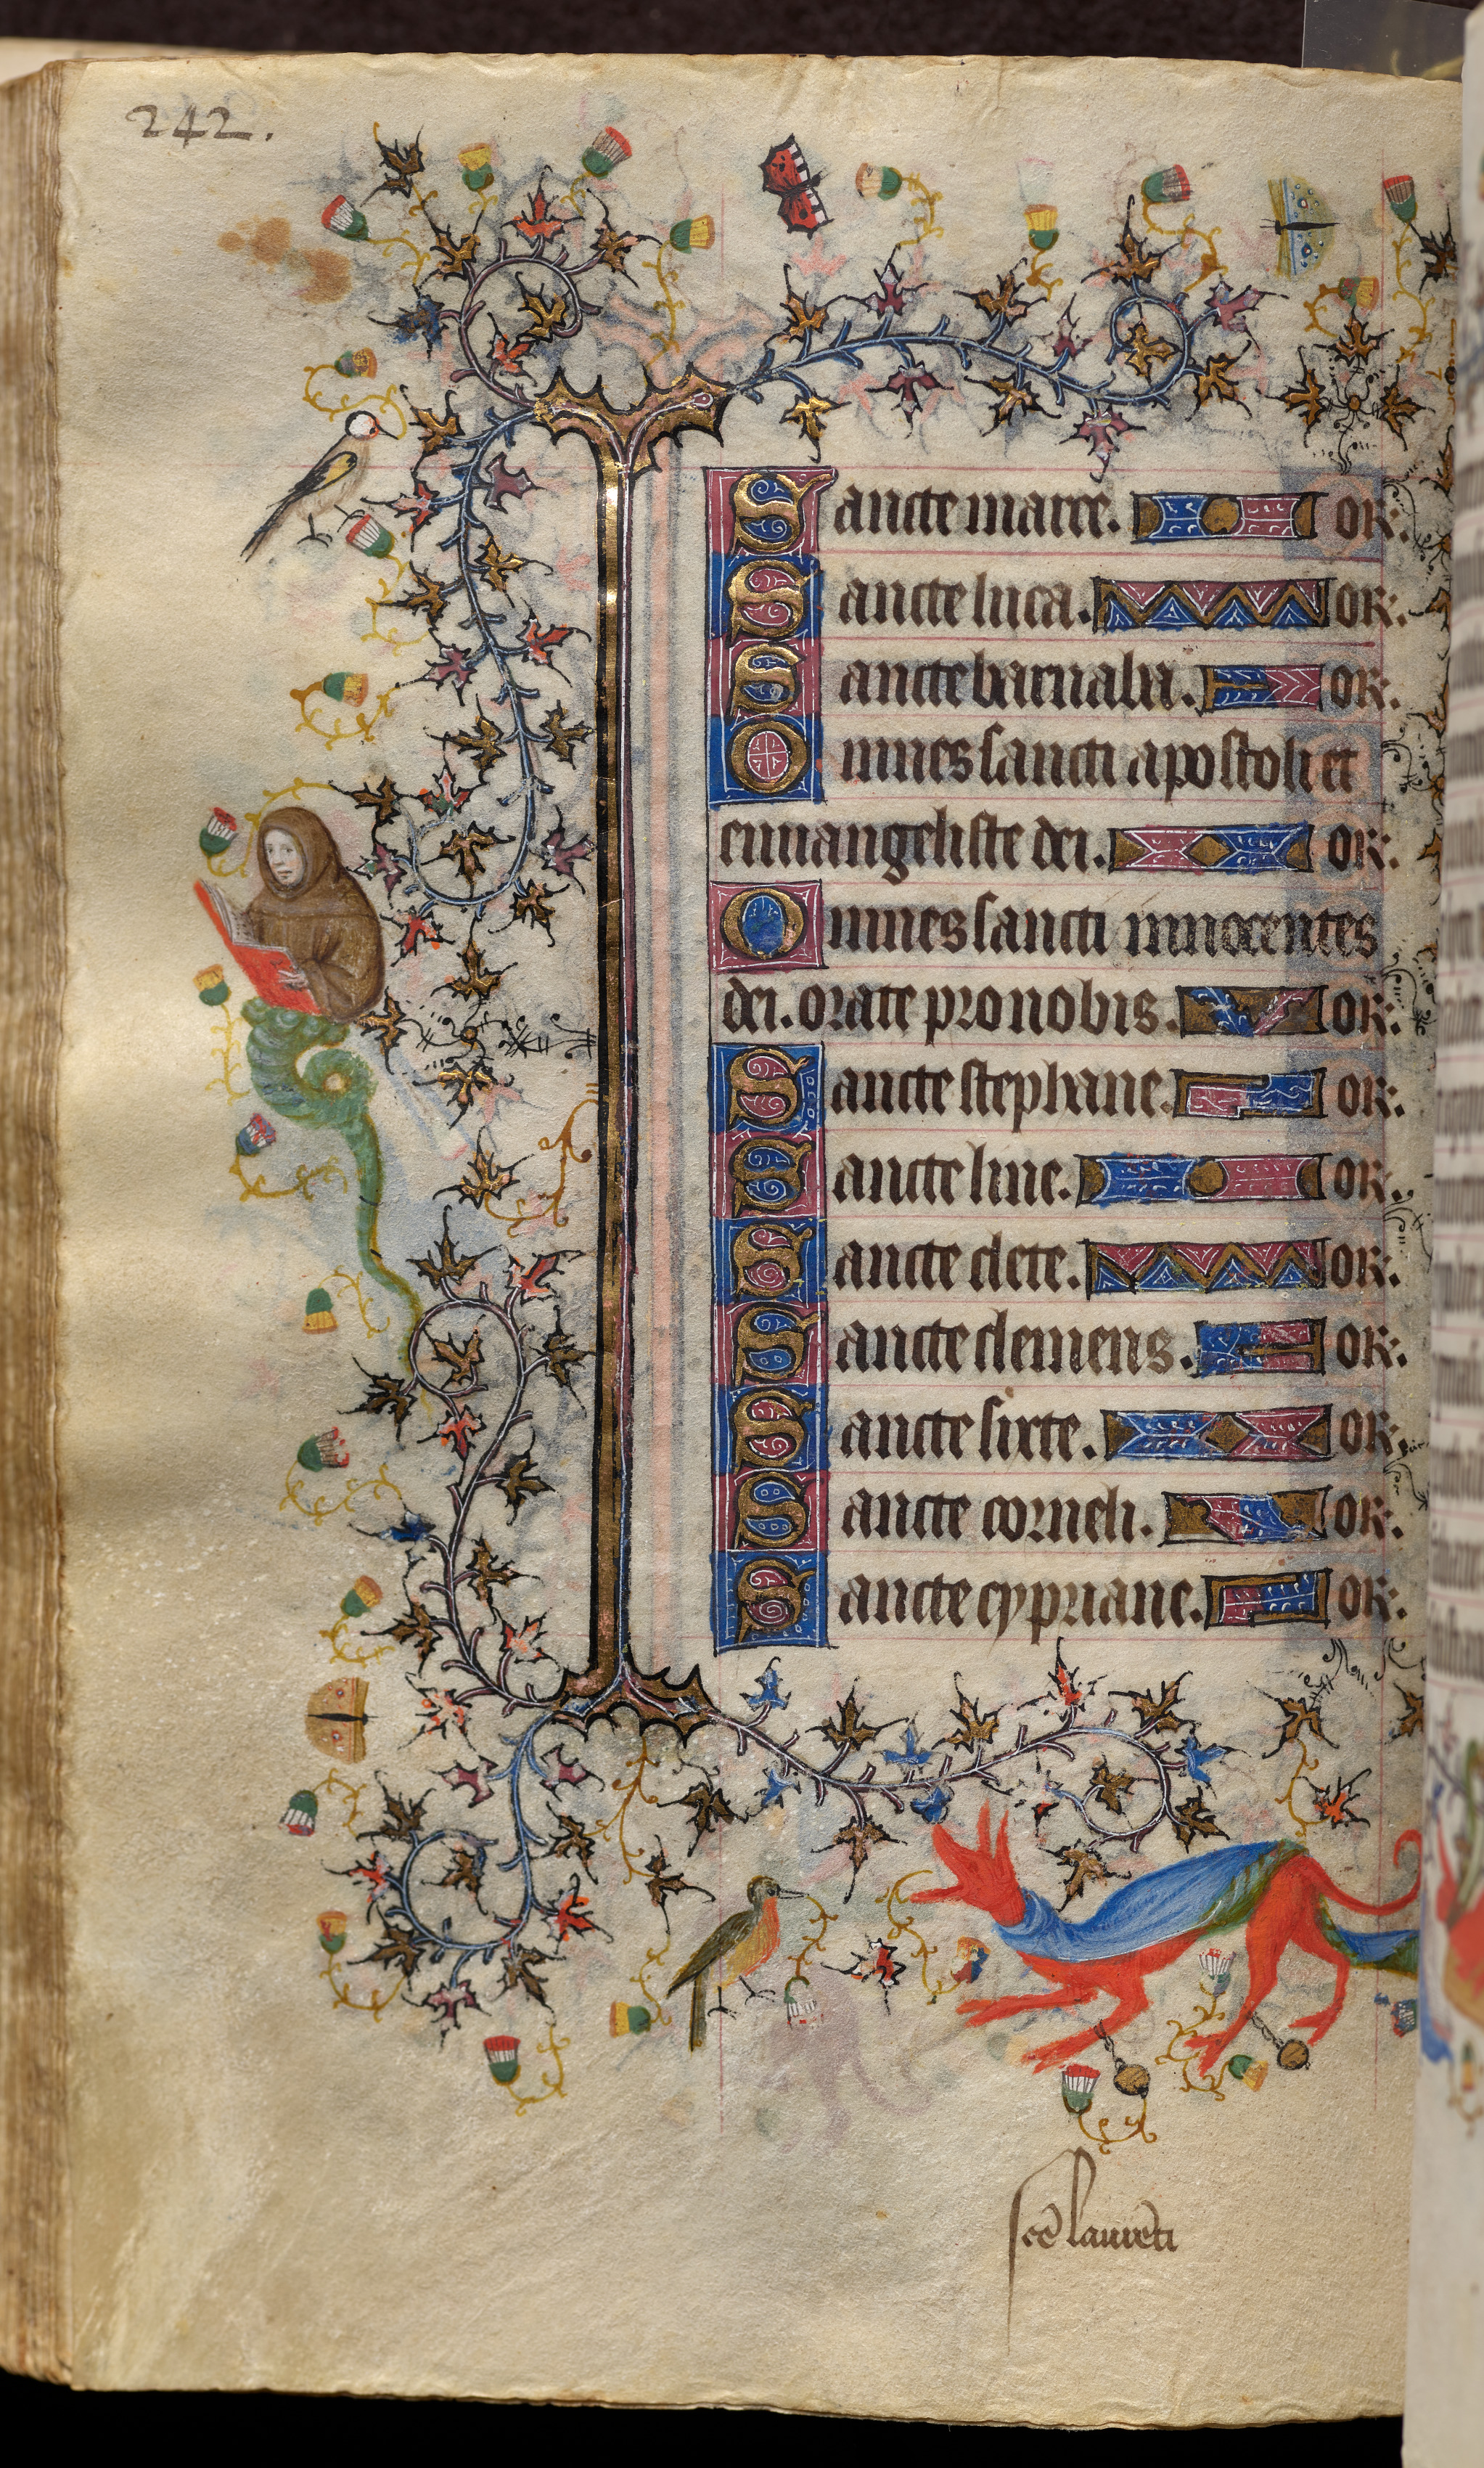 242.
Sancte marce. or.
Sancte luca. or.
Sancte barnaba. or.
Omnes sancti apostoli et
euuangeliste dei. or.
Omnes sancti innocentes
dei. orate pro nobis. or.
Sancte stephane. or.
Sancte line. or.
Sancte clete. or.
Sancte clemens. or.
Sancte sixte. or.
Sancte corneli. or.
Sancte cypriane. or.
sce laureti